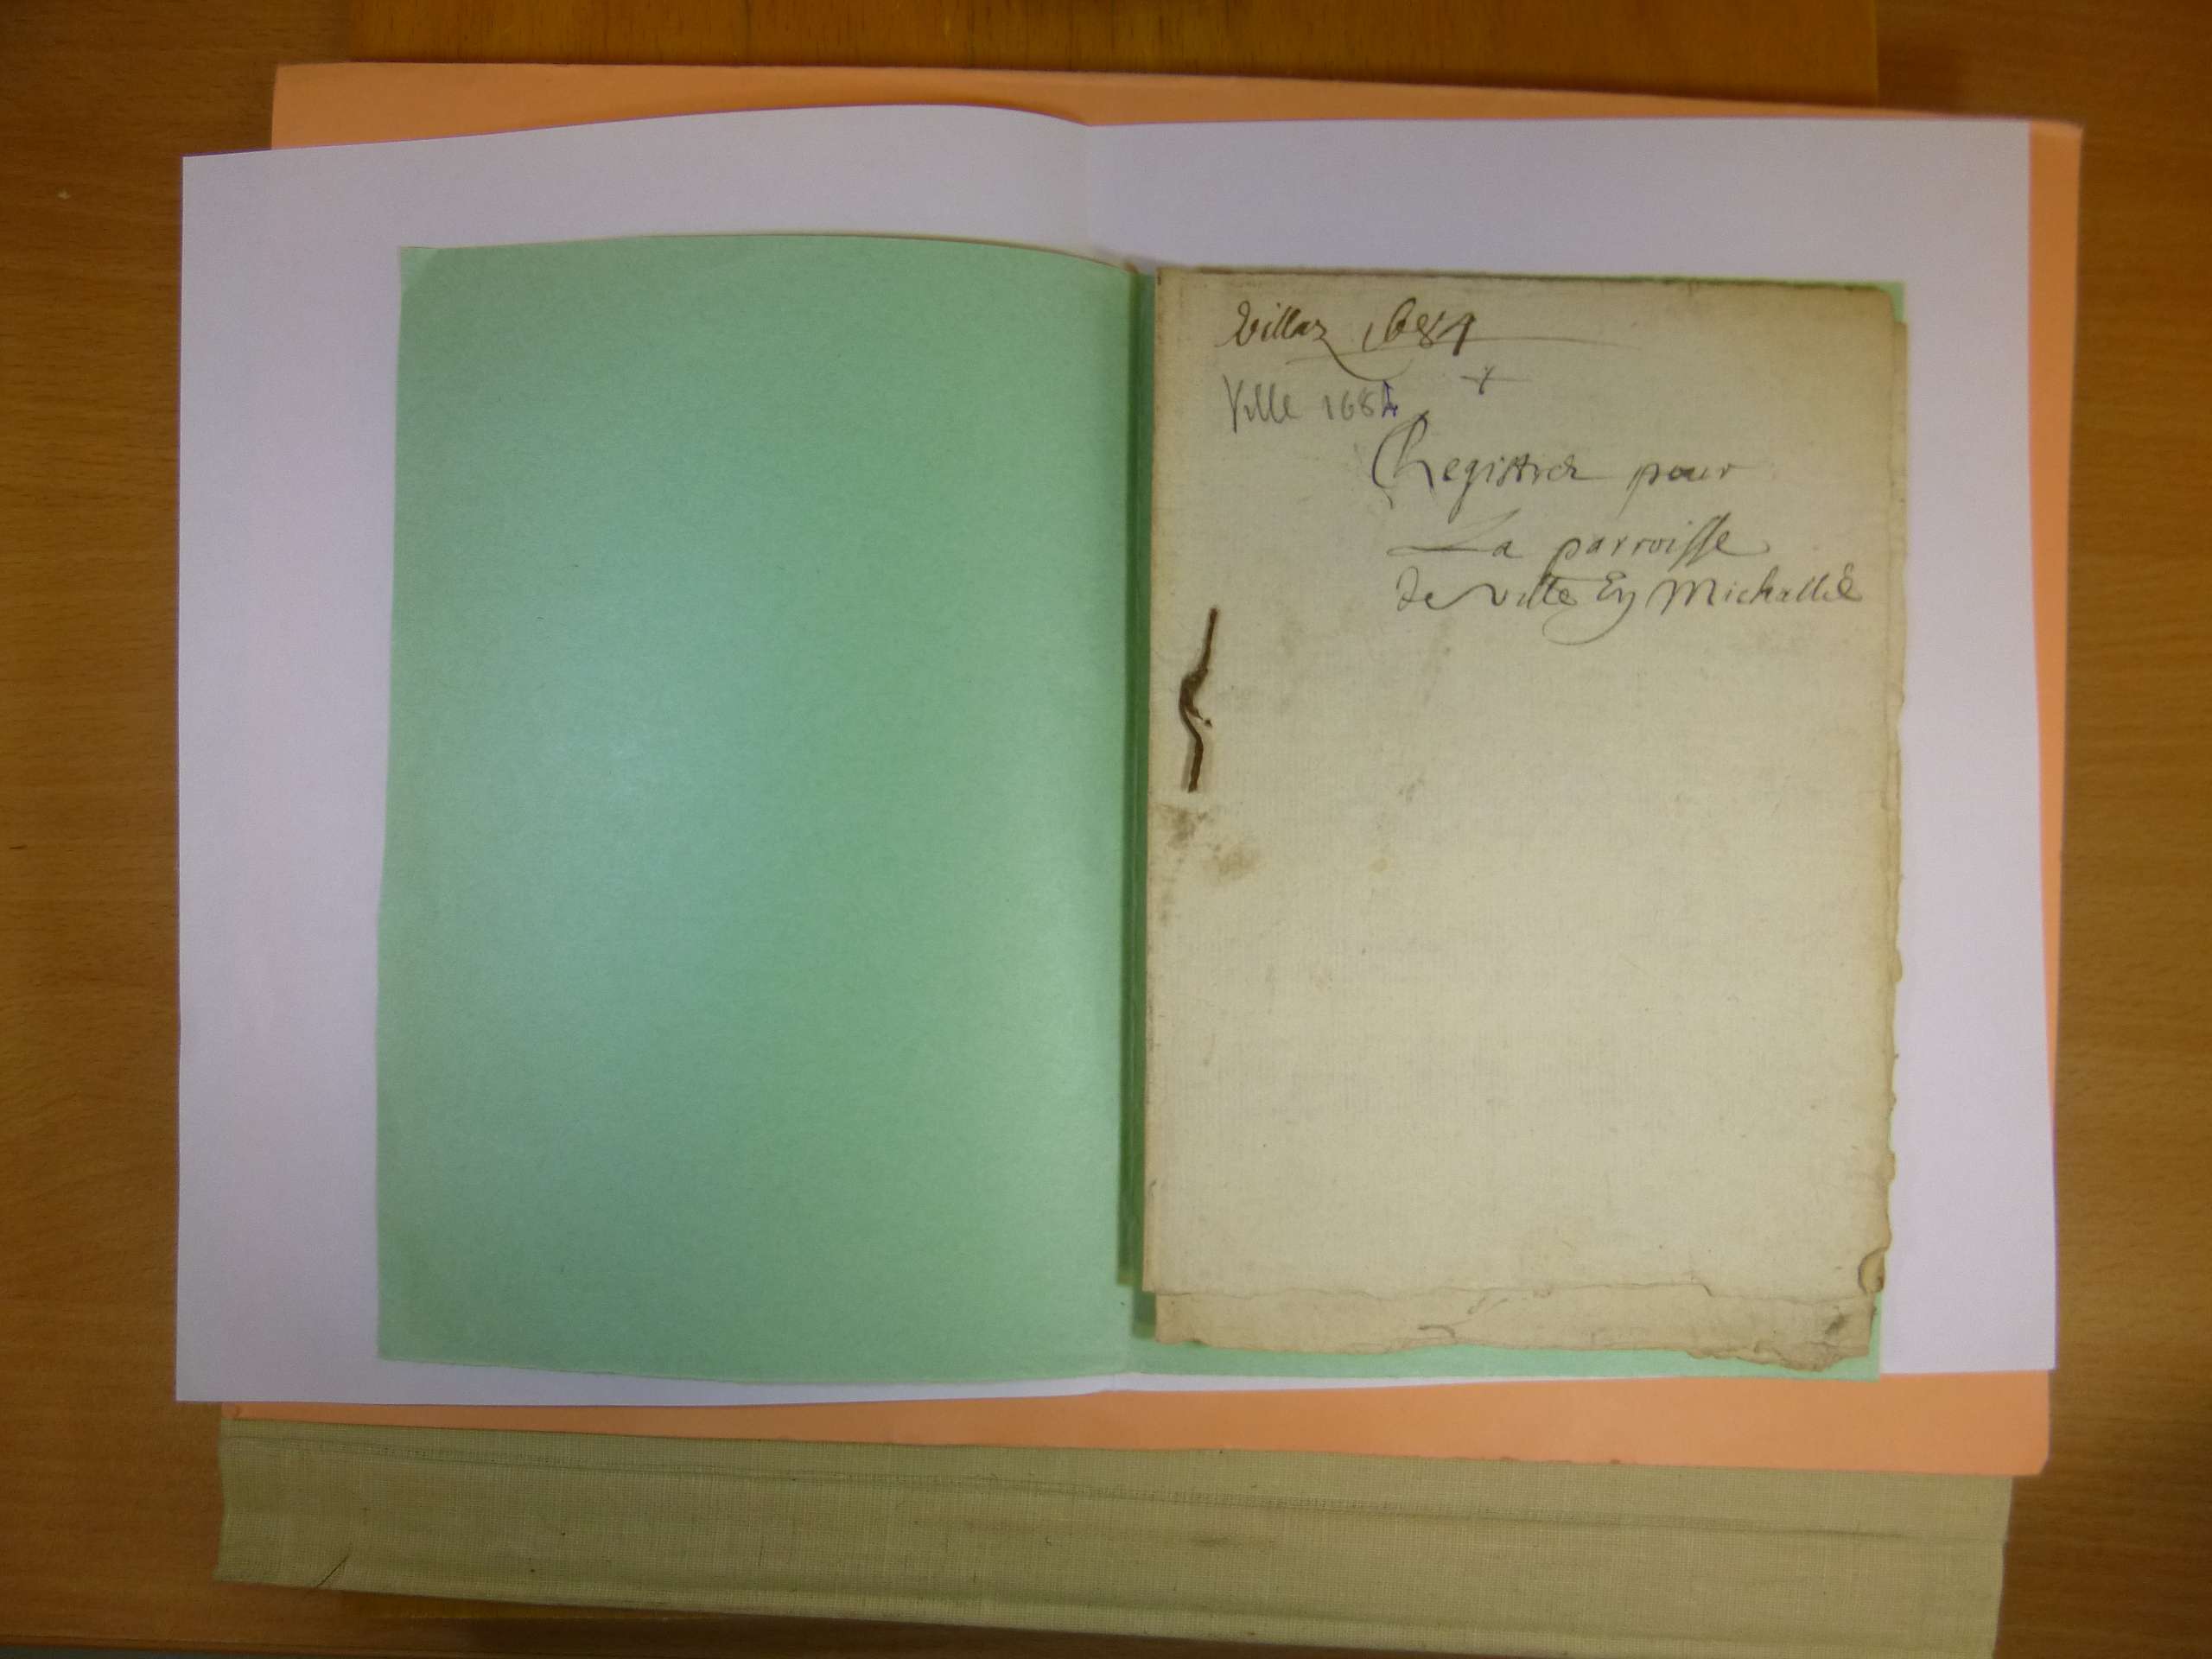 Villaz 1684
Ville 1684
+
Registre pour
La parroisse
de ville En Michallie